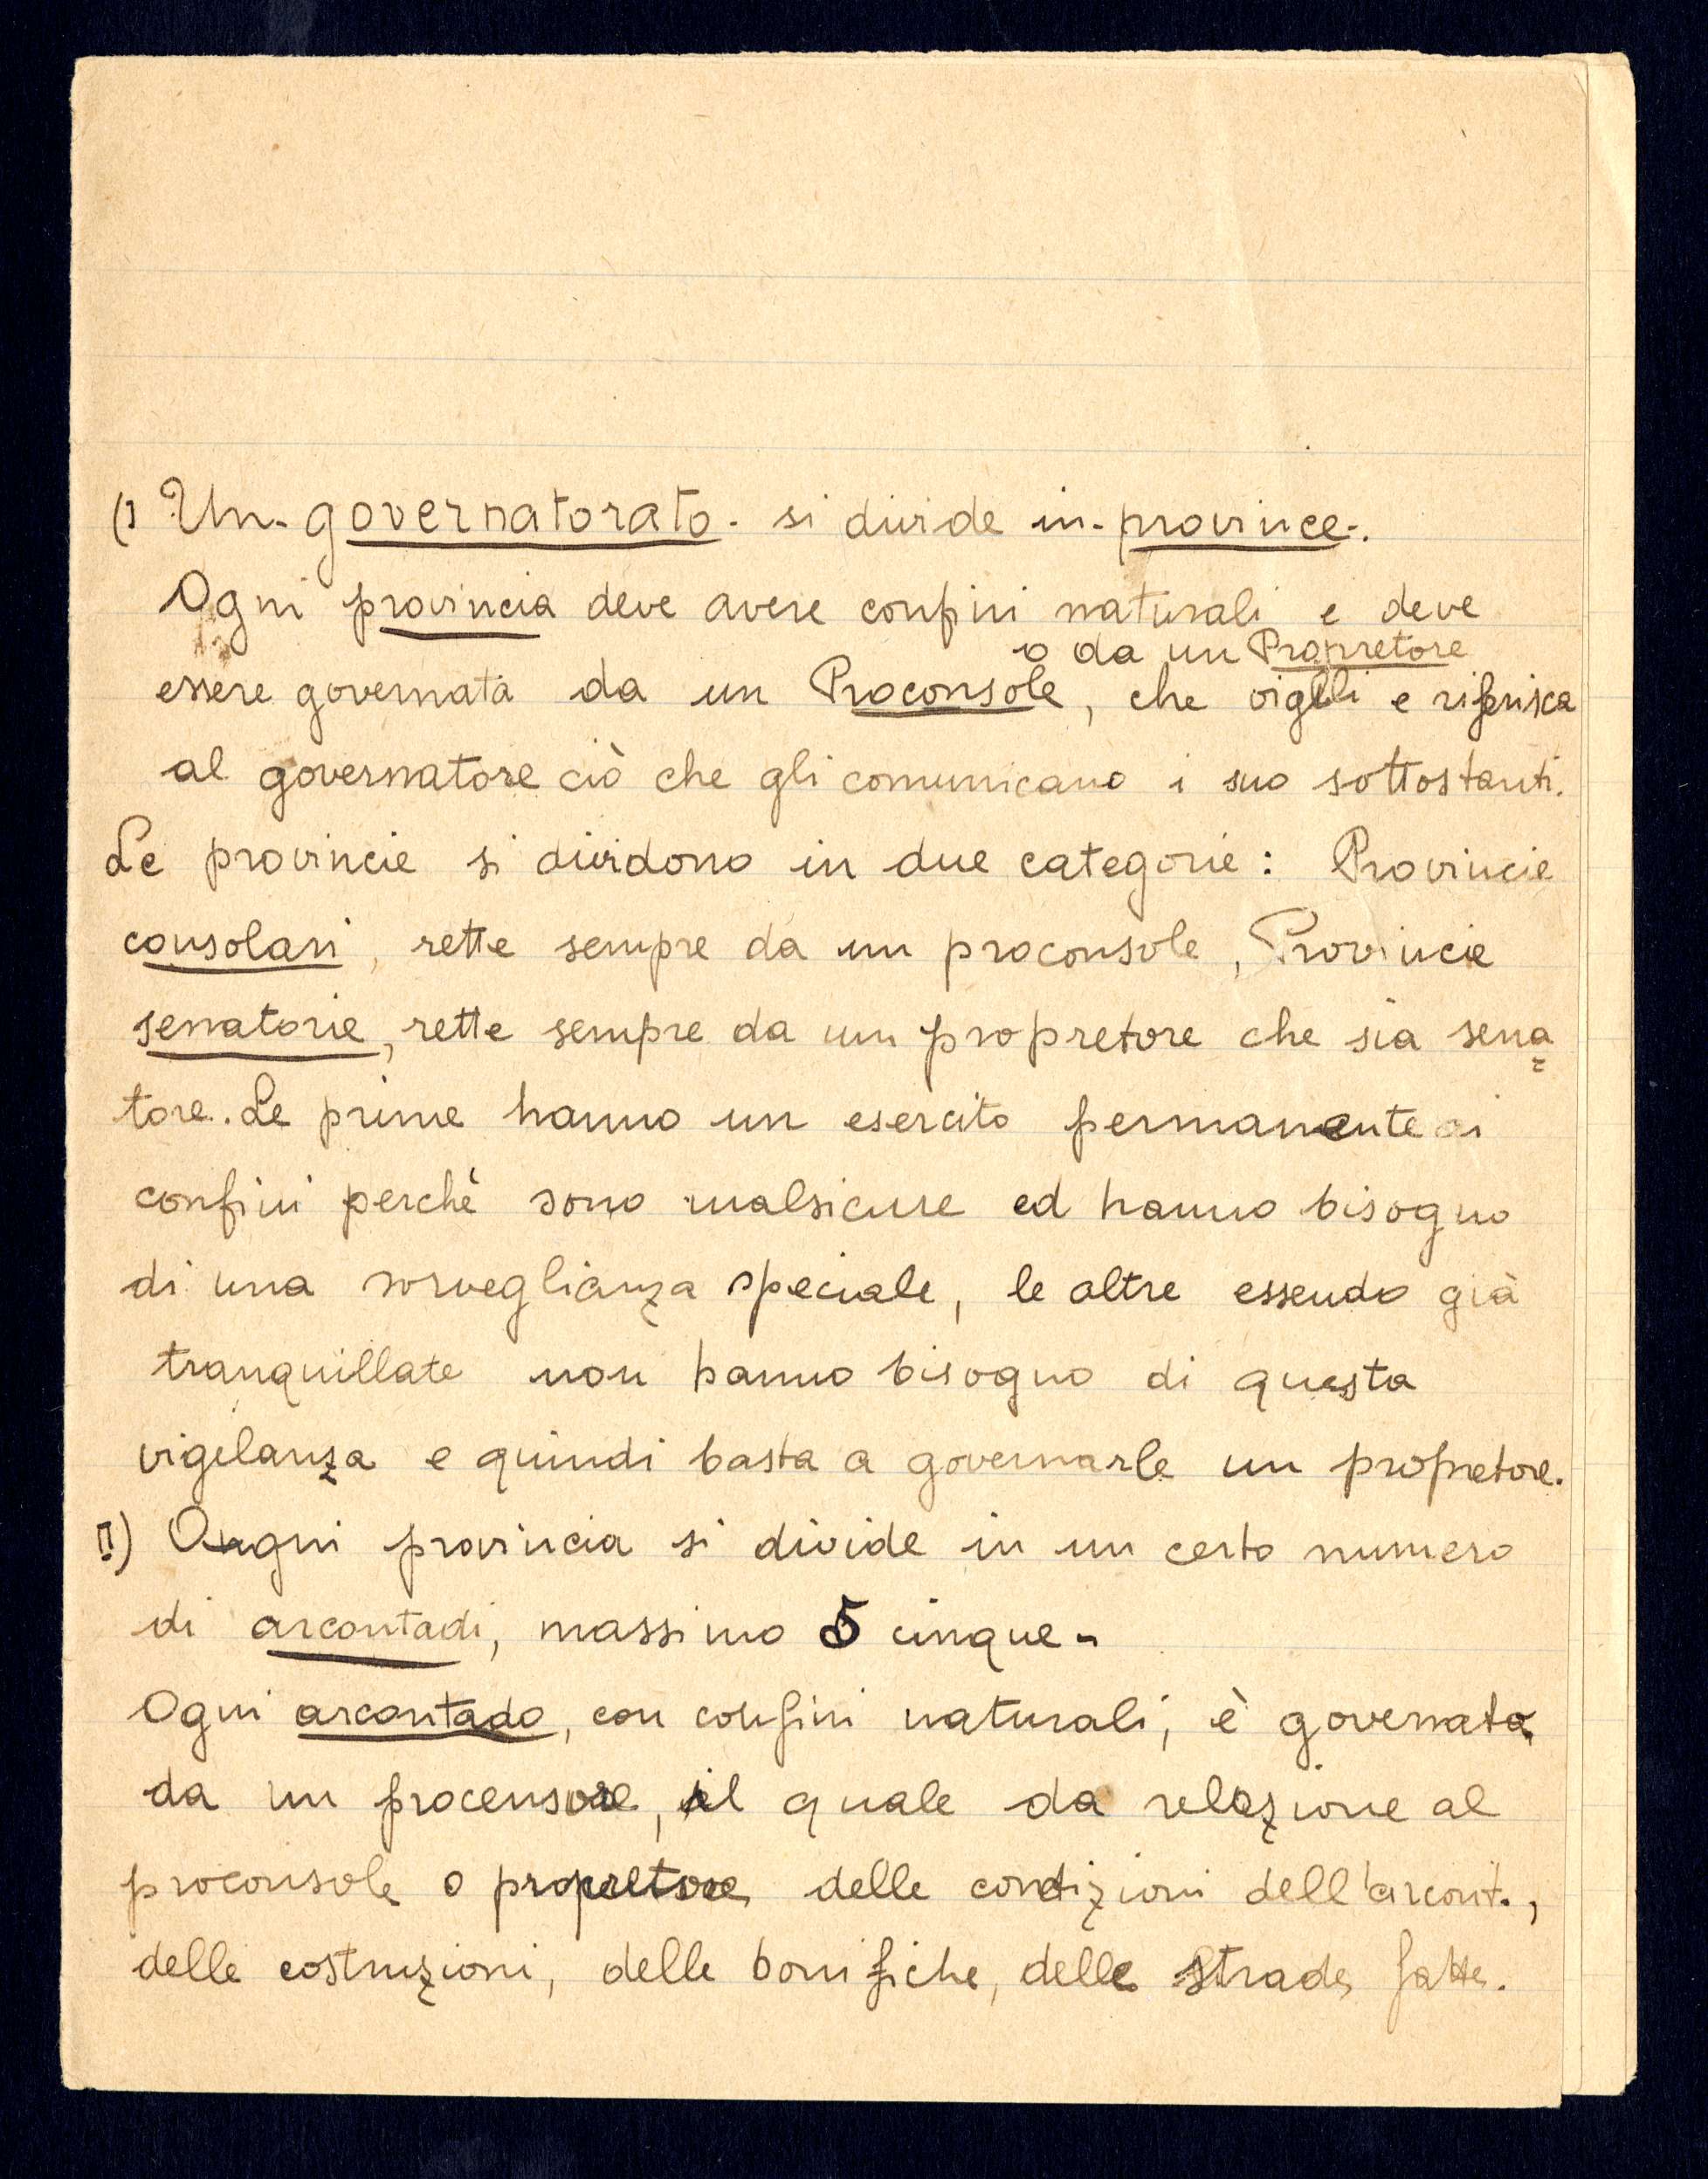 I) Un- governatorato - si divide in - province -.
Ogni provincia deve avere confini naturali e deve
o da un Propretore
essere governata da un Proconsole, che vigili e riferisca
al governatore ciò che gli comunicano i suo sottostanti.
Le provincie si dividono in due categorie: Provincie
consolari, rette sempre da un proconsole, Provincie
senatorie, rette sempre da un propretore che sia sena=
tore. Le prime hanno un esercito permanente ai
confini perchè sono malsicure ed hanno bisogno
di una sorveglianza speciale, le altre essendo già
tranquillate non hanno bisogno di questa
vigilanza e quindi basta a governarle un propretore.
II) Ogni provincia si divide in un certo numero
di arcontadi, massimo 5 cinque -
Ogni arcontado, con confini naturali, è governato
da un procensore, il quale da relazione al
proconsole o propretore delle condizioni dell'arcont.,
delle costruzioni, delle bonifiche, delle strade fatte.